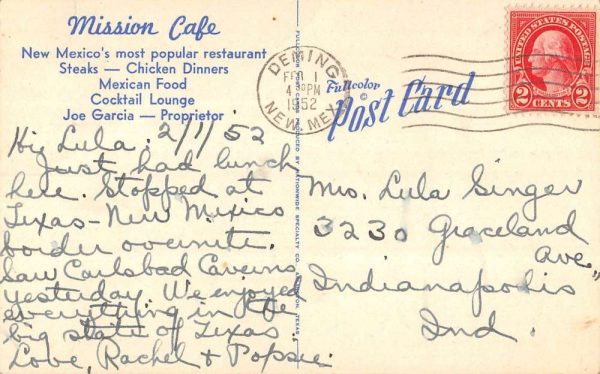 Mission Cafe
New Mexico's most popular restaurant
Steaks — Chicken Dinners
Mexican Food
Cocktail Lounge
Joe Garcia — Proprietor
Hi Lula. 2/1/52
Just had lunch
here. Stopped at
Texas-New Mexico
border overnite.
Saw Carlsbad Caverns
yesterday. We enjoyed
everything in the
big state of Texas.
Love, Rachel & Popsie.
DEMING
FEB 1
PM
1952
NEW MEX
Fullcolor
Post Card
UNITED STATES POSTAGE
2 CENTS 2
Mrs. Lula Singer
3230 Graceland
Ave.
Indianapolis
Ind.